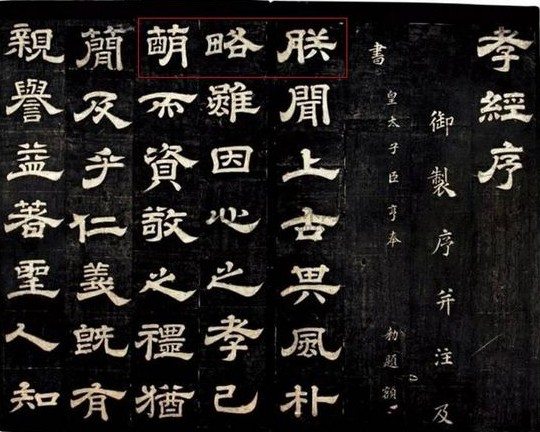 孝經序
御製序并注及
書 皇太子臣亨奉 勑題額
朕聞上古其風朴
略雖因心之孝已
萌而資敬之禮猶
簡及乎仁義既有
親譽益著聖人知